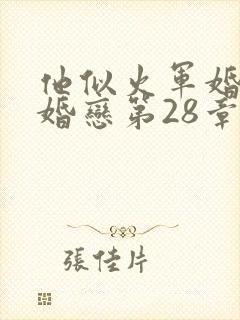 他似火軍婚
婚戀第28章
張佳片